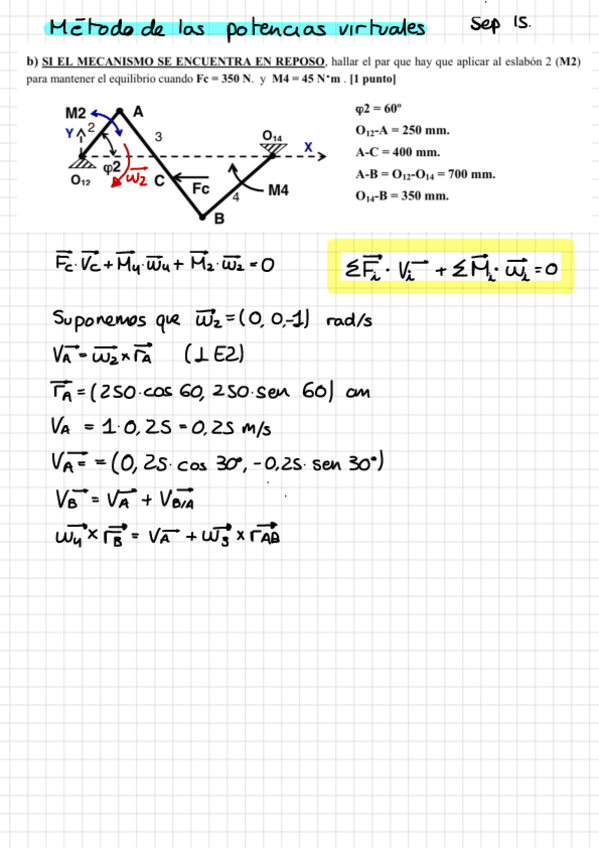 Método de las potencias virtuales Sep 15.
b) SI EL MECANISMO SE ENCUENTRA EN REPOSO, hallar el par que hay que aplicar al eslabón 2 (M2)
para mantener el equilibrio cuando Fc = 350 N. y M4 = 45 N*m . [1 punto]
M2
A
Y
2
3
O14
X
φ2
O12
w2
C
Fc
4
M4
B
φ2 = 60º
O12-A = 250 mm.
A-C = 400 mm.
A-B = O12-O14 = 700 mm.
O14-B = 350 mm.
Fc · Vc + M4 · w4 + M2 · w2 = 0
ΣFi · Vi + ΣMi · wi = 0
Suponemos que w2 = (0, 0, -1) rad/s
VA = w2 × rA (⊥ E2)
rA = (250 · cos 60, 250 · sen 60) cm
VA = 1 · 0,25 = 0,25 m/s
VA = = (0,25 · cos 30°, -0,25 · sen 30°)
VB = VA + VB/A
w4 × rB = VA + w3 × rAB